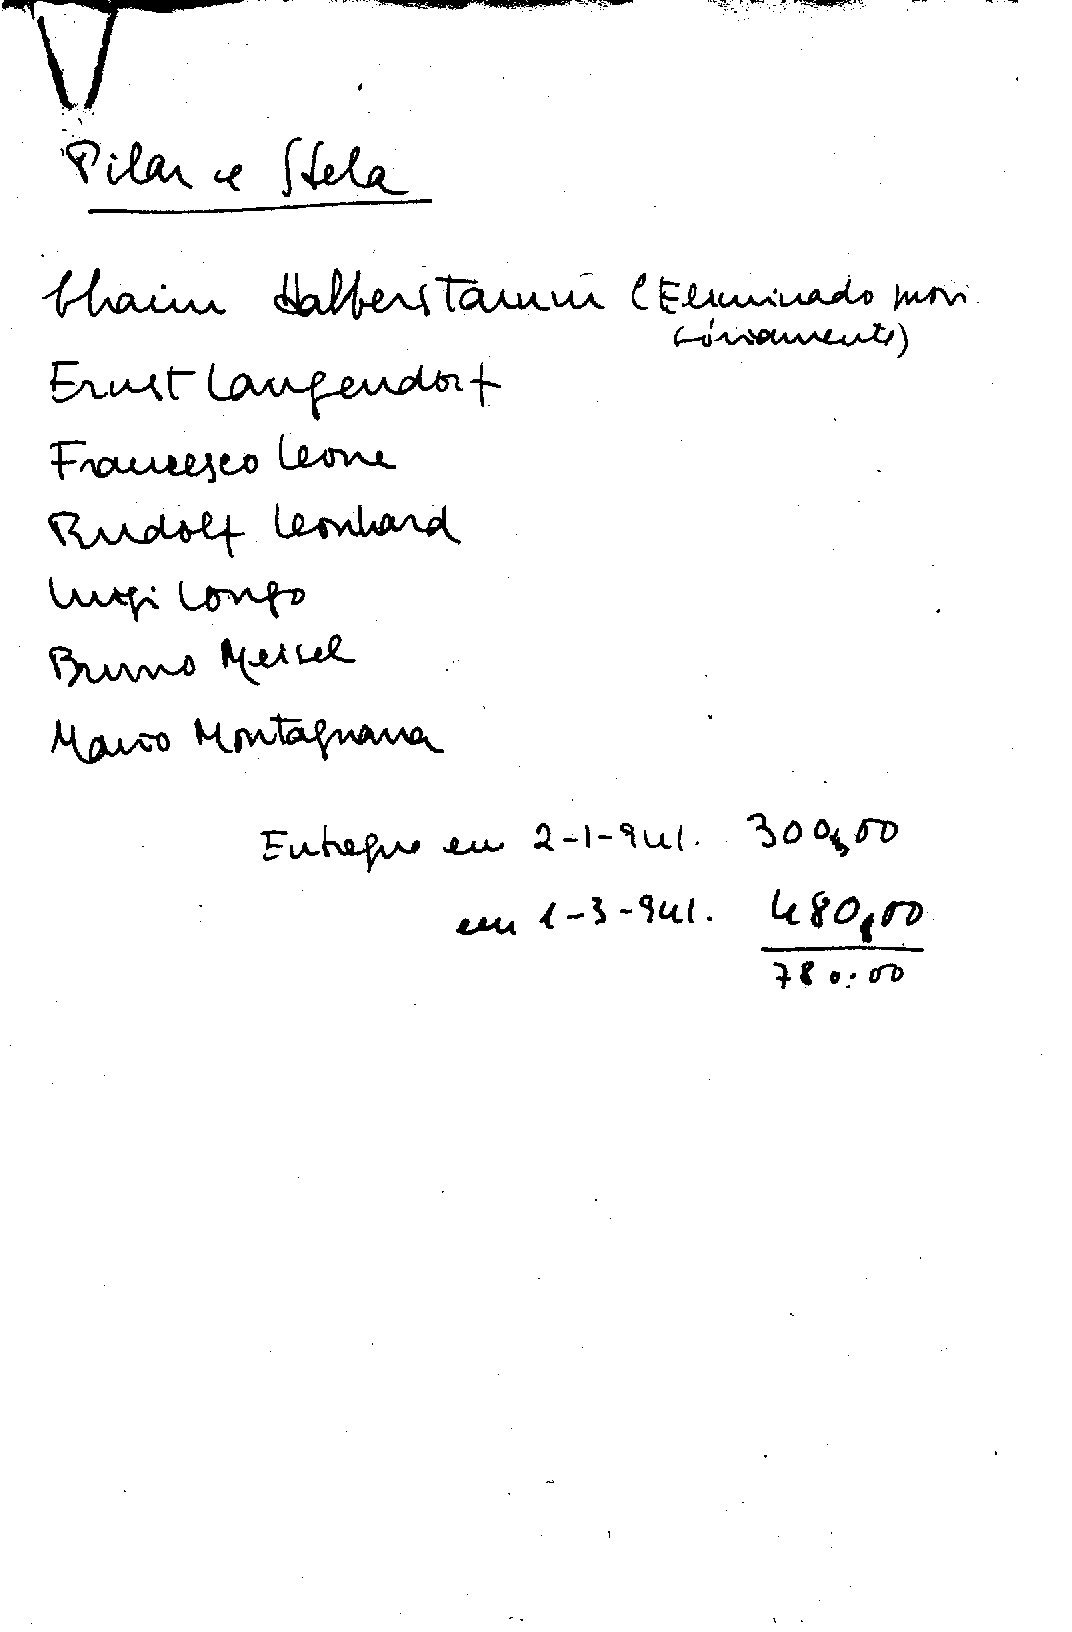 Pilar e Stela
Chaim Halberstamm (Eliminado provi
sòriamente)
Ernst Langendorf
Francesco Leone
Rudolf Leonhard
Luigi Longo
Bruno Meisel
Mario Montagnana
Entregue em 2-1-941. 300,00
em 1-3-941. 480,00
780.00